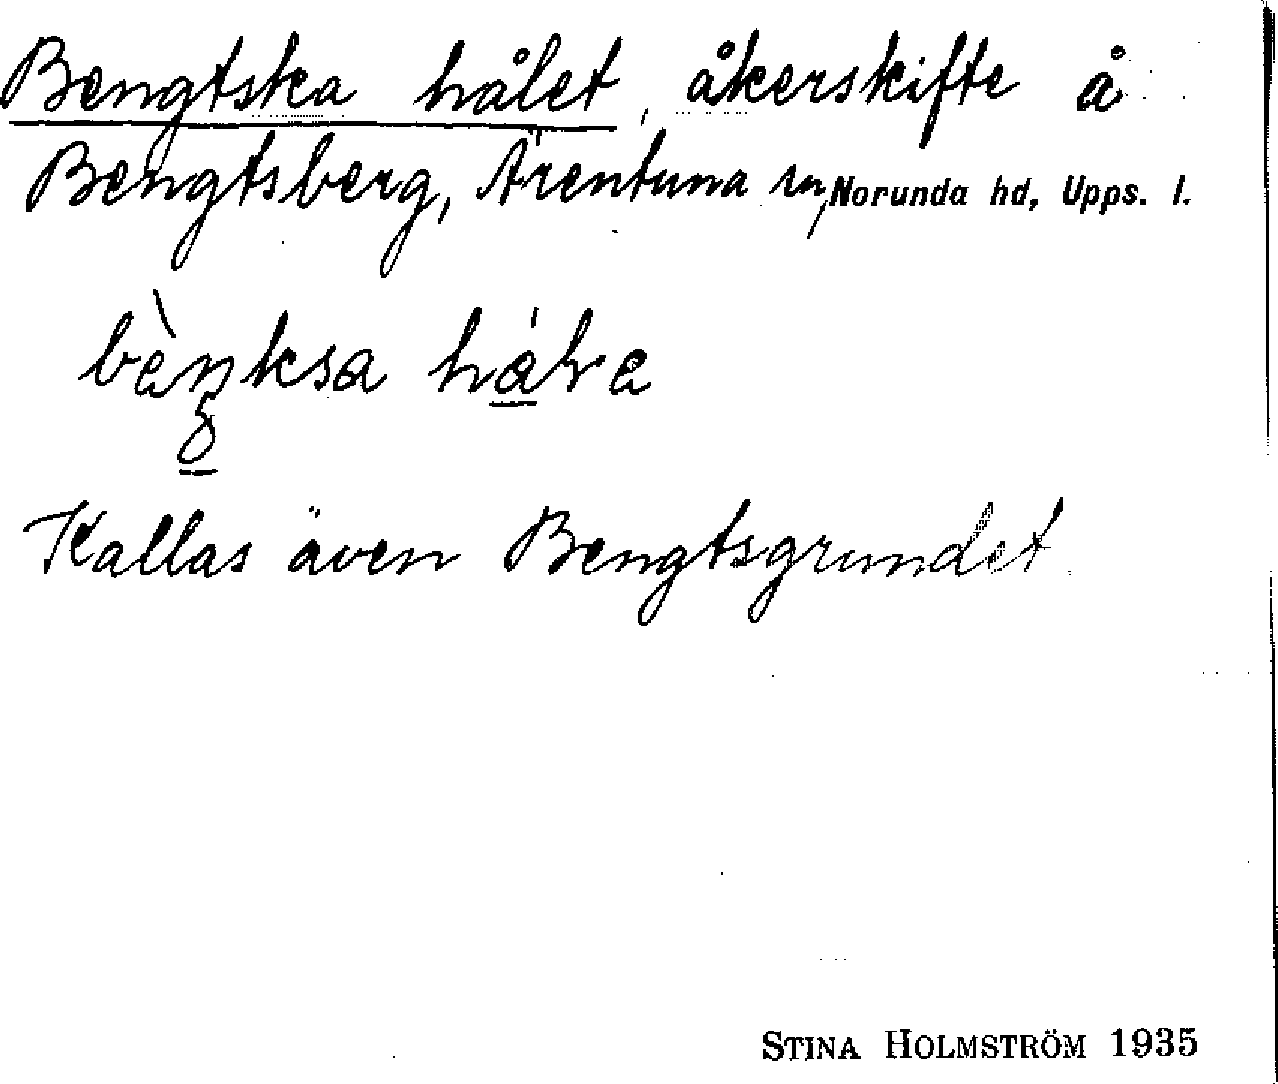 Bengtska hålet, åkerskifte å
Bengtsberg, Ärentuna sn, Norunda hd, Upps. l.
Kallas även Bengtsgrundet
STINA HOLMSTRÖM 1935